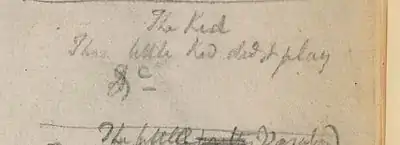 The Kid
Thou little Kid didst play
&c
The little Vagabond